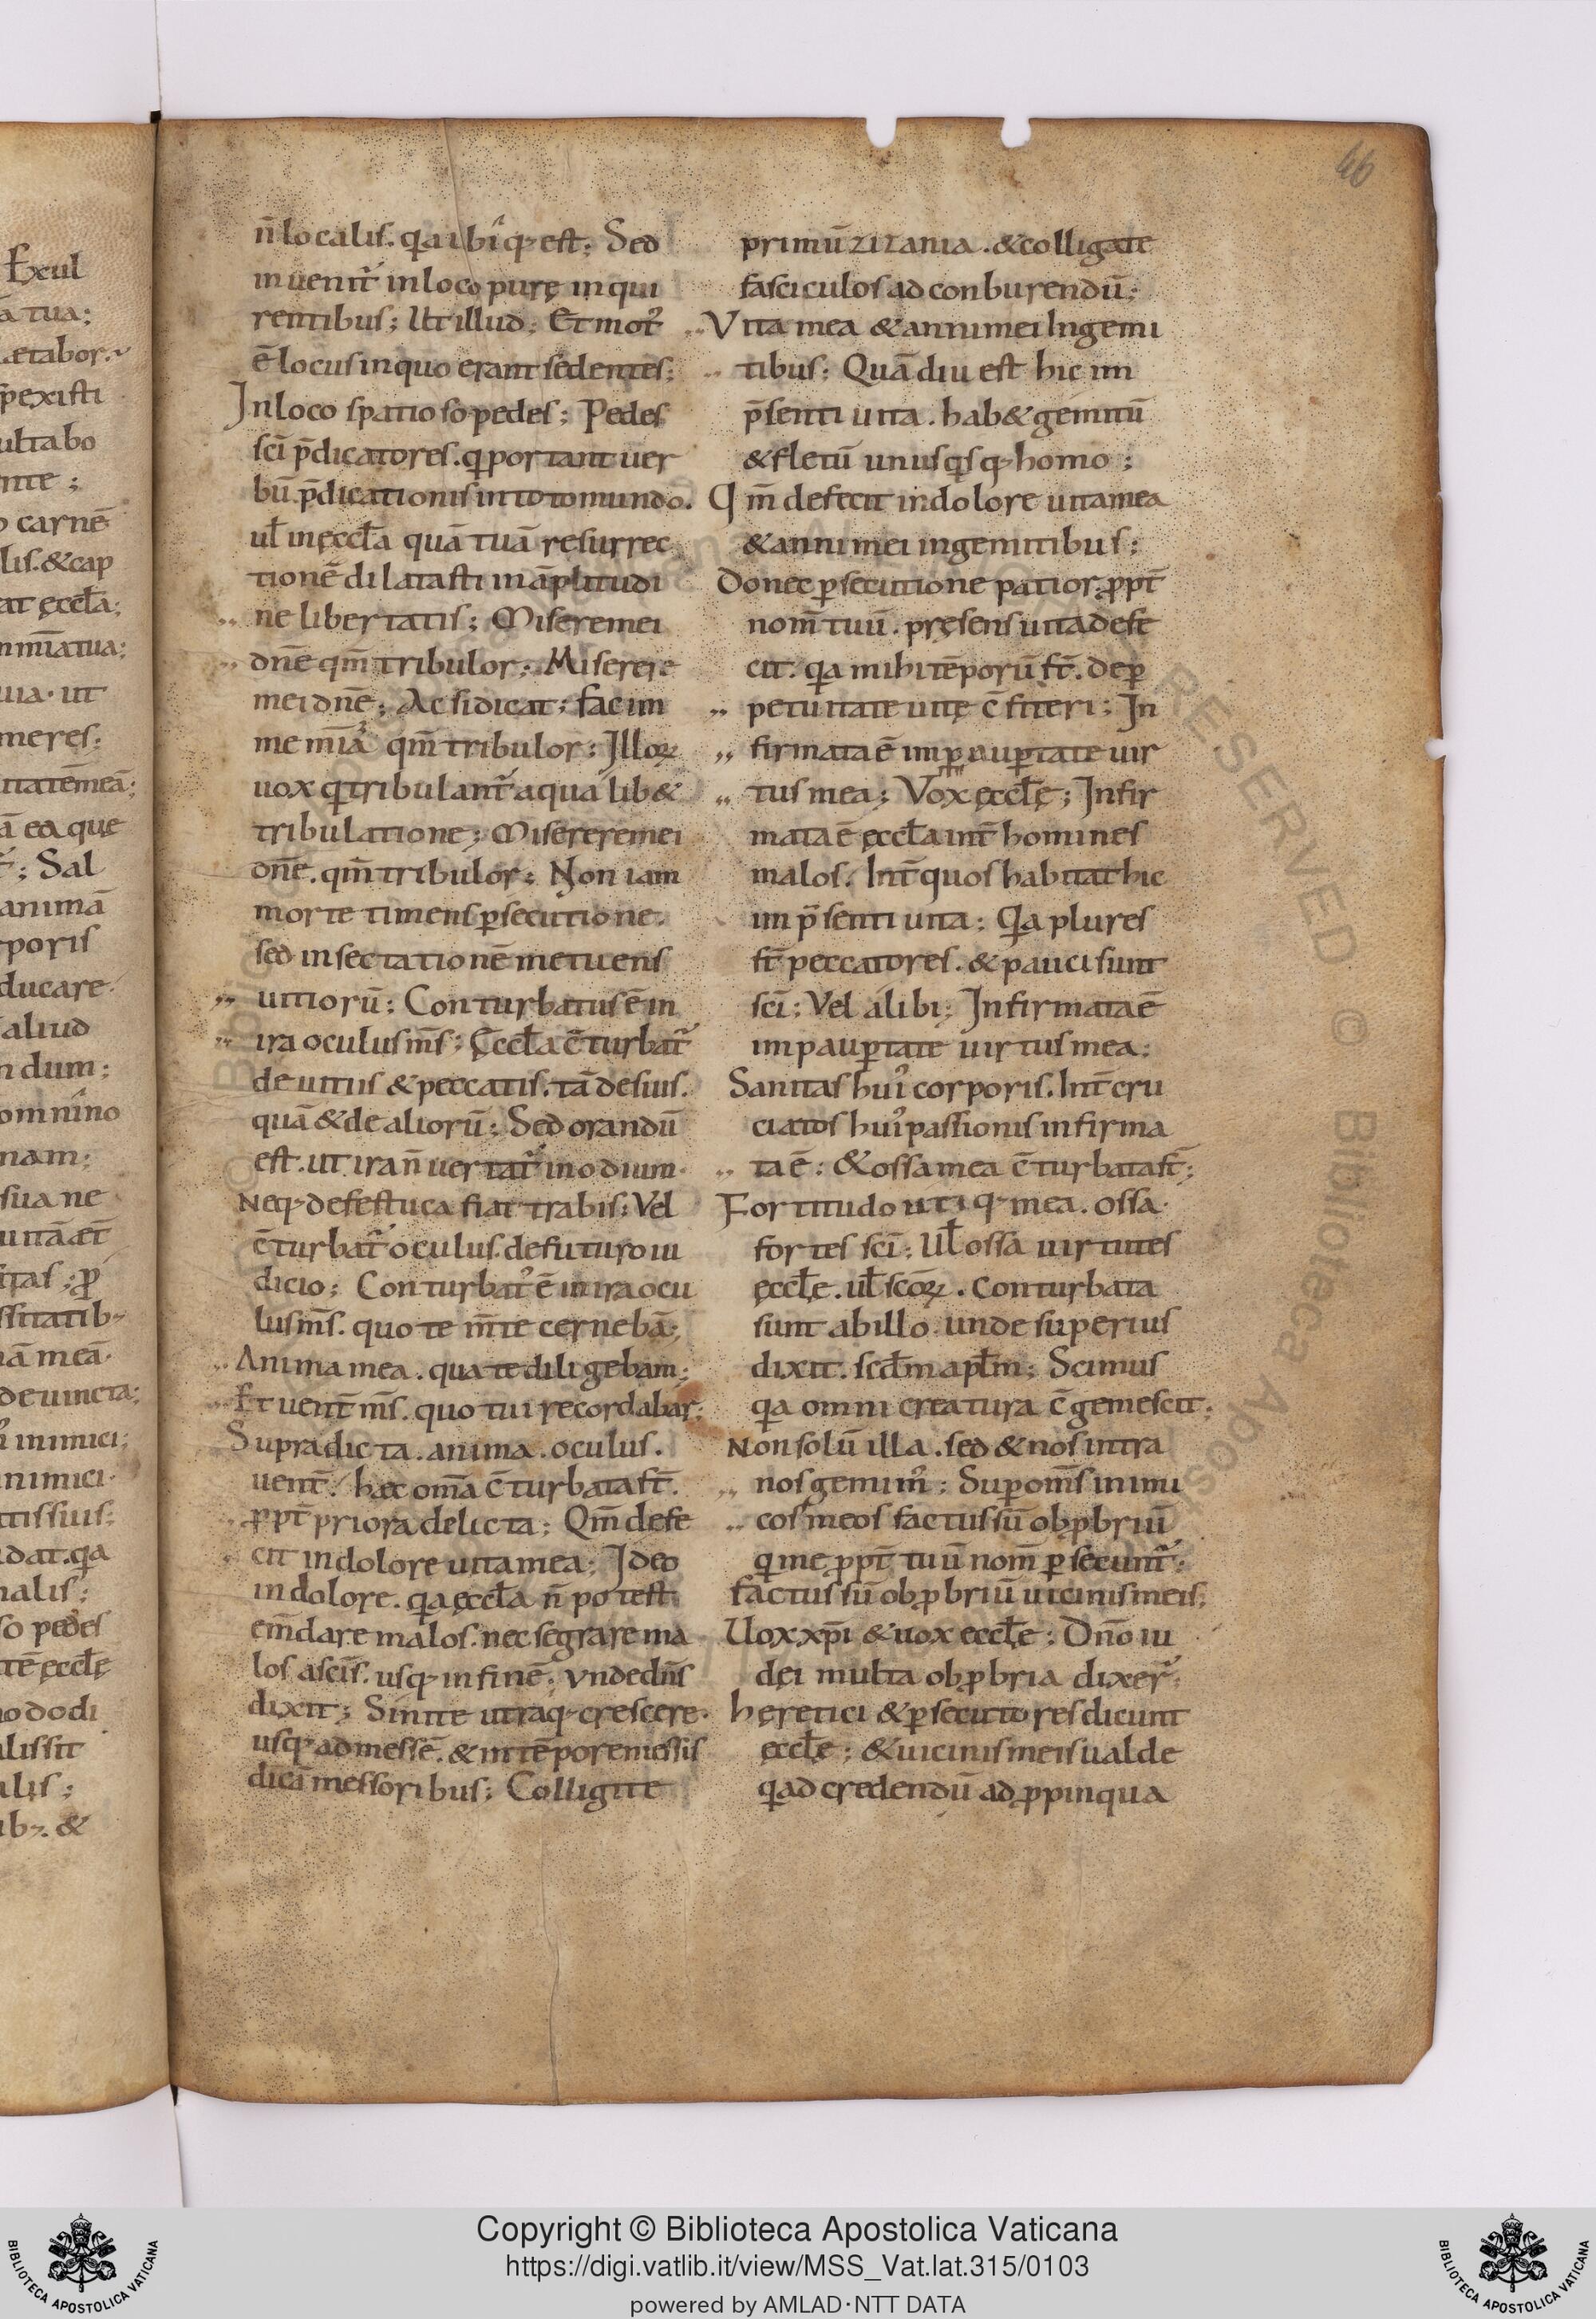 46
Exul
ā tua;
p̄existi
ultabo
nte;
carnē
lis. &cap
at ęccła;
uia. ut
meres:
ā ea que
; Sal
animā
rporis
ducare.
aliud
ndum;
omnino
nam;
sua ne
nā meā.
deuincta;
inimici;
nimici.
dat. q̄a
nalis;
so pedes
tē ęccłę
dodi
lissit
ulis;
n̄ localis. q̄a ibiq; est; Sed
inuenit̃ in loco purę inqui
rentibus; Ut illud; Et mot᷒
ē locus in quo erant sedentes;
In loco spatioso pedes; Pedes
sc̄i p̄dicatores. q̄ portant uer
bū p̄dicationis in toto mundo.
uł in ęccła quā tuā resurrec
tionē dilatasti in āplitudi
ne libertatis; Misere mei
dn̄e qm̄ tribulor; Miserere
mei dn̄e; Ac si dicat; fac im
me mīa qm̄ tribulor; Illoꝝ
uox q̄ tribulant̃ a qua lib&
tribulatione; Miserere mei
dn̄e. qm̄ tribulor; Non iam
morte timens ꝑsecutione.
sed insectationē metuens
uitiorū; Conturbatus ē in
ira oculus m̄s; Ęccła c̄turbat̃
de uitiis & peccatis. tā de suis.
quā & de aliorū; Sed orandū
est. ut ira n̄ uertat̃ in odium.
Neq; de festuca fiat trabis; Vel
c̄turbat̃ oculus. de futuro iu
dicio; Conturbat᷒ ē in ira ocu
lus m̄s. quo te m̄te cernebā;
Anima mea. qua te diligebam;
Et uent̄ m̄s. quo tui recordabar;
Supradicta. anima. oculus.
uent̄. hæc om̄a c̄turbata st̄.
ꝓpt̄ priora delicta; Qm̄ defe
cit in dolore uita mea; Ideo
in dolore. q̄a ęccła n̄ potest
em̄dare malos. nec segrare ma
los a sc̄is. usq; in finē; Vnde dn̄s
dixit; Sinite utraq; crescere.
usq; ad messē. & in tēpore messis
dicā messoribus; Colligite
primū zizania. & colligate
fasciculos ad conburendū;
Vita mea & anni mei In gemi
tibus; Quā diu est hic im
p̄senti uita. hab& gemitū
& fletū unusq̄sq; homo;
Qm̄ defecit in dolore uita mea
& anni mei in gemitibus;
Donec ꝑsecutione patior. ꝓpt̄
nom̄ tuū. pręsens uita defe
cit. q̄a mihi tēporū st̄. de ꝑ
petuitate uitę c̄fiteri; In
firmata ē im pauꝑtate uir
tus mea; Vox ęccłę; Infir
mata ē ęccła int̄ homines
malos. Int̄ quos habitat hic
im p̄senti uita; Q̄a plures
st̄ peccatores. & pauci sunt
sc̄i; Vel alibi; Infirmata ē
im pauꝑtate uirtus mea;
Sanitas hui᷒ corporis. Int̄ cru
ciatos hui᷒ passionis infirma
ta ē; & ossa mea c̄turbata st̄;
Fortitudo utiq; mea. ossa.
fortes sc̄i; Uł ossa uirtutes
ęccłe. uł sc̄oꝝ. Conturbata
sunt ab illo. unde superius
dixit. scd̄m apłm; Scimus
q̄a omni creatura c̄gemescit;
Non solū illa. sed & nos intra
nos gemim᷒; Suꝑ om̄s inimi
cos meos factus sū obꝓbriū
q̄ me ꝓpt̄ tuū nom̄ ꝑsecunt̃;
factus sū obꝓbriū uicinis meis;
Uox xp̄i & uox eccłe; Dn̄o iu
dęi multa obꝓbria dixer̃;
heretici & ꝑsecutores dicunt
ęccłe; & uicinis meis ualde
q̄ ad credendū adꝓpinqua
Copyright © Biblioteca Apostolica Vaticana
https://digi.vatlib.it/view/MSS_Vat.lat.315/0103
powered by AMLAD·NTT DATA
BIBLIOTECA APOSTOLICA VATICANA
BIBLIOTECA APOSTOLICA VATICANA